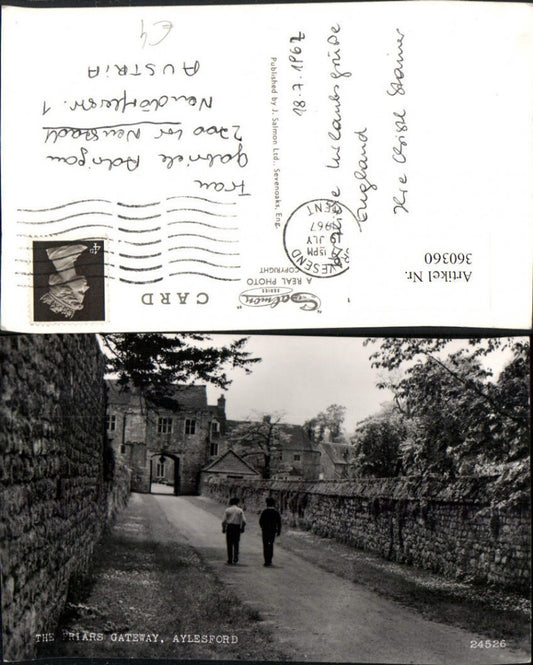 €4
18.7.1967
Herzliche Urlaubsgrüße
England
Christl Stainer
Published by J. Salmon Ltd., Sevenoaks, Eng.
Frau
Gabriele
2700 Wr. Neustadt
1
AUSTRIA
KENT
1967
JLY
15PM
4D
CARD
"Salmon"
SERIES
A REAL PHOTO
COPYRIGHT
Artikel Nr.
360360
THE FRIARS GATEWAY, AYLESFORD
24526